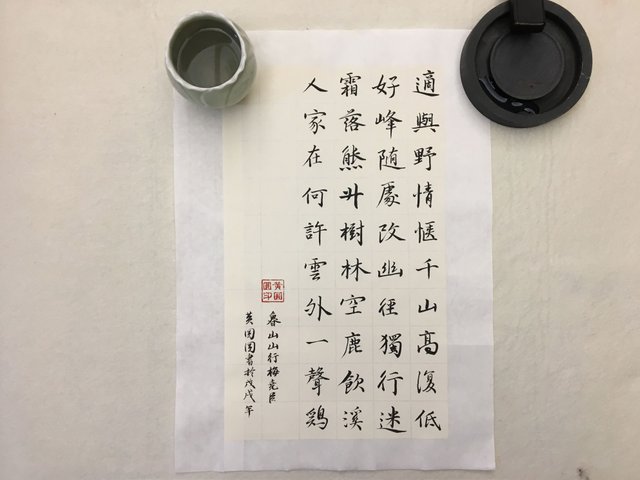 適與野情愜千山高復低
好峰隨處改幽徑獨行迷
霜落熊升樹林空鹿飲溪
人家在何許雲外一聲鷄
魯山山行梅堯臣
書於戊戌年